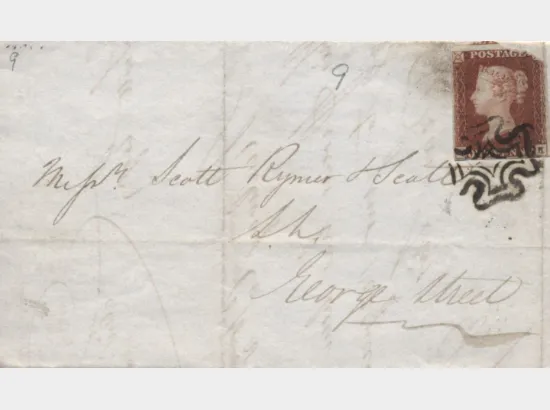 9
9
POSTAGE
Messrs. Scott Rymer & Scott
George Street